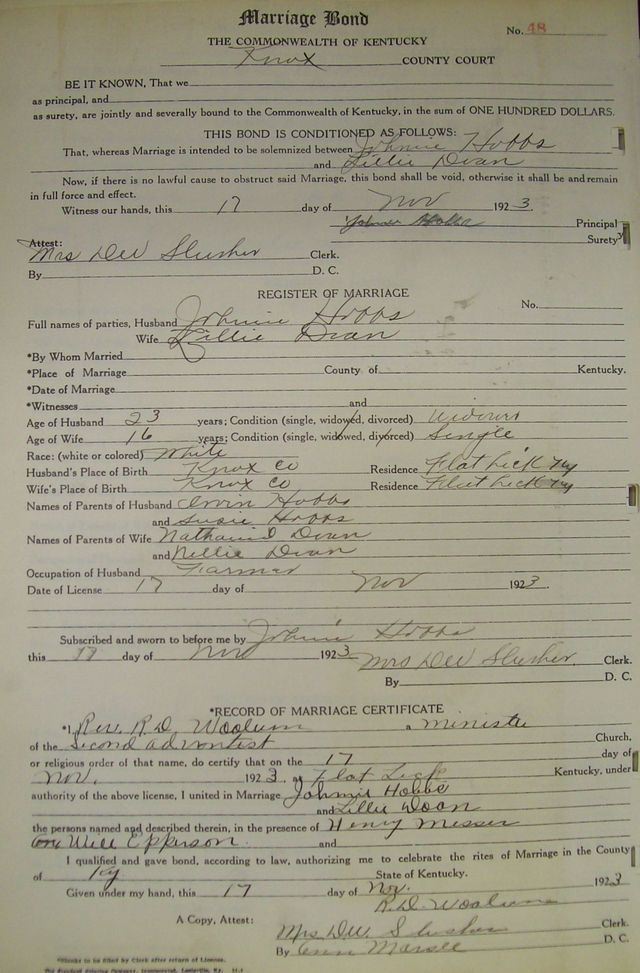 Marriage Bond
No. 48
THE COMMONWEALTH OF KENTUCKY
Knox COUNTY COURT
BE IT KNOWN, That we
as principal, and
as surety, are jointly and severally bound to the Commonwealth of Kentucky, in the sum of ONE HUNDRED DOLLARS.
THIS BOND IS CONDITIONED AS FOLLOWS:
That, whereas Marriage is intended to be solemnized between Johnnie Hobbs
and Lillie Doan
Now, if there is no lawful cause to obstruct said Marriage, this bond shall be void, otherwise it shall be and remain
in full force and effect.
Witness our hands, this 17 day of Nov 1923.
Johnie Hobbs Principal
Surety
Attest:
Mrs Dew Slusher Clerk.
By D. C.
REGISTER OF MARRIAGE
No.
Full names of parties, Husband Johnnie Hobbs
Wife Lillie Doan
*By Whom Married
*Place of Marriage County of Kentucky.
*Date of Marriage
*Witnesses and
Age of Husband 23 years; Condition (single, widowed, divorced) Widower
Age of Wife 16 years; Condition (single, widowed, divorced) Single
Race: (white or colored) White
Husband's Place of Birth Knox Co Residence Flat Lick Ky
Wife's Place of Birth Knox Co Residence Flat Lick Ky
Names of Parents of Husband Ervin Hobbs
and Susie Hobbs
Names of Parents of Wife Nathaniel Doan
and Nellie Doan
Occupation of Husband Farmer
Date of License 17 day of Nov 1923
Subscribed and sworn to before me by Johnie Hobbs
this 17 day of Nov 1923 Mrs Dew Slusher Clerk.
By D. C.
*RECORD OF MARRIAGE CERTIFICATE
*I Rev. R. D. Woolum a Ministe
of the Second adventist Church,
or religious order of that name, do certify that on the 17 day of
Nov. 1923, at Flat Lick Kentucky, under
authority of the above license, I united in Marriage Johnnie Hobbs
and Lillie Doan
the persons named and described therein, in the presence of Henry Messer
Will Epperson and
I qualified and gave bond, according to law, authorizing me to celebrate the rites of Marriage in the County
of Ky State of Kentucky.
Given under my hand, this 17 day of Nov. 1923
R. D. Woolum
A Copy, Attest:
Mrs Dew Slusher Clerk.
By Ann Marsee D. C.
*Blanks to be filled by Clerk after return of License.